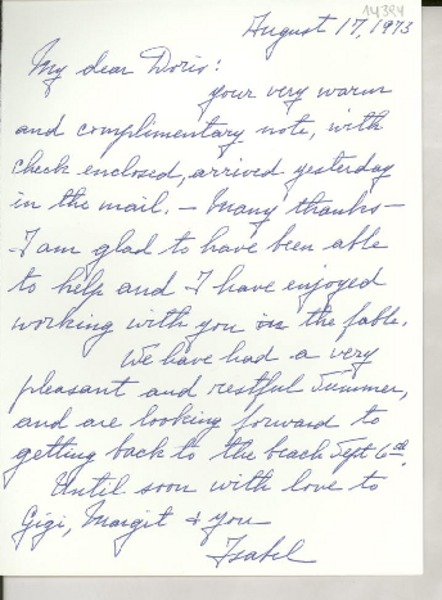 14384
August 17, 1973
My dear Doris:
your very warm
and complimentary note, with
check enclosed, arrived yesterday
in the mail. — Many thanks —
I am glad to have been able
to help and I have enjoyed
working with you on the fable.
We have had a very
pleasant and restful Summer,
and are looking forward to
getting back to the beach Sept 6th.
Until soon with love to
Gigi, Margit & you
Isabel